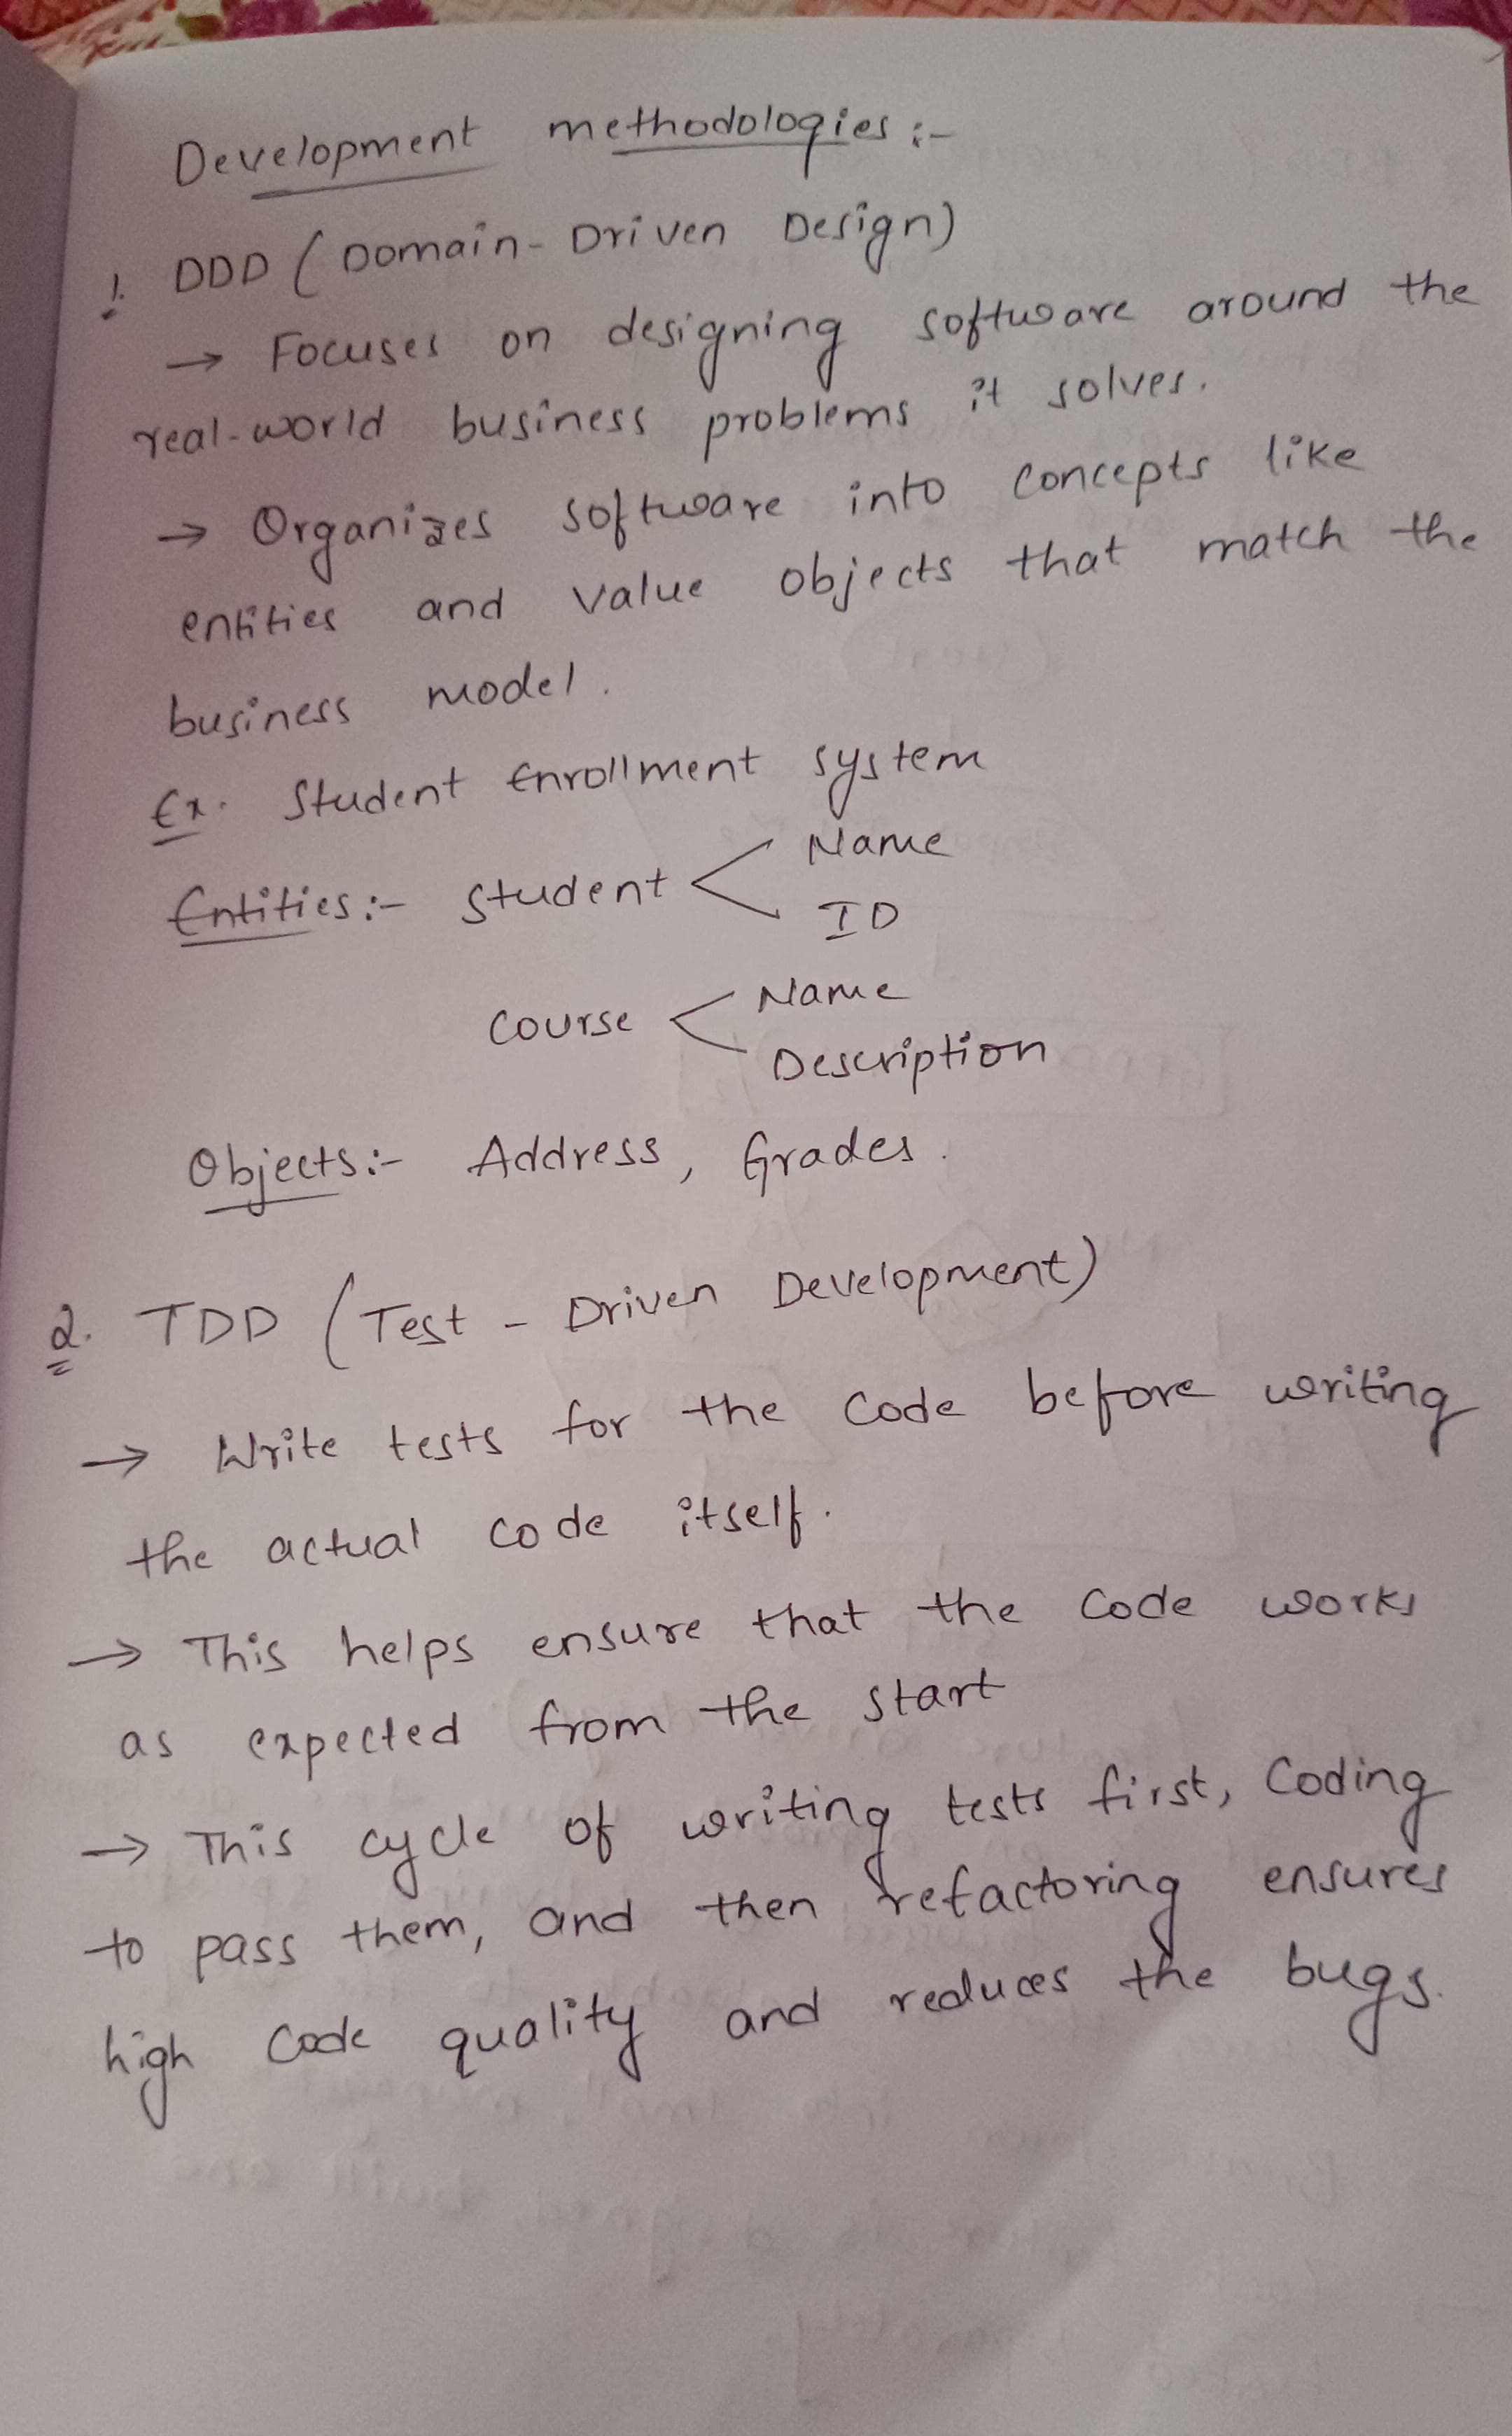 Development methodologies :-
1. DDD ( Domain - Driven Design)
→ Focuses on designing software around the
real-world business problems it solves.
→ Organizes software into concepts like
entities and value objects that match the
business model.
Ex. Student Enrollment system
Entities:- Student < Name
ID
Course < Name
Description
Objects:- Address, Grades.
2. TDD (Test - Driven Development)
→ Write tests for the code before writing
the actual code itself.
→ This helps ensure that the code works
as expected from the start
→ This cycle of writing tests first, Coding
to pass them, and then refactoring ensures
high code quality and reduces the bugs.